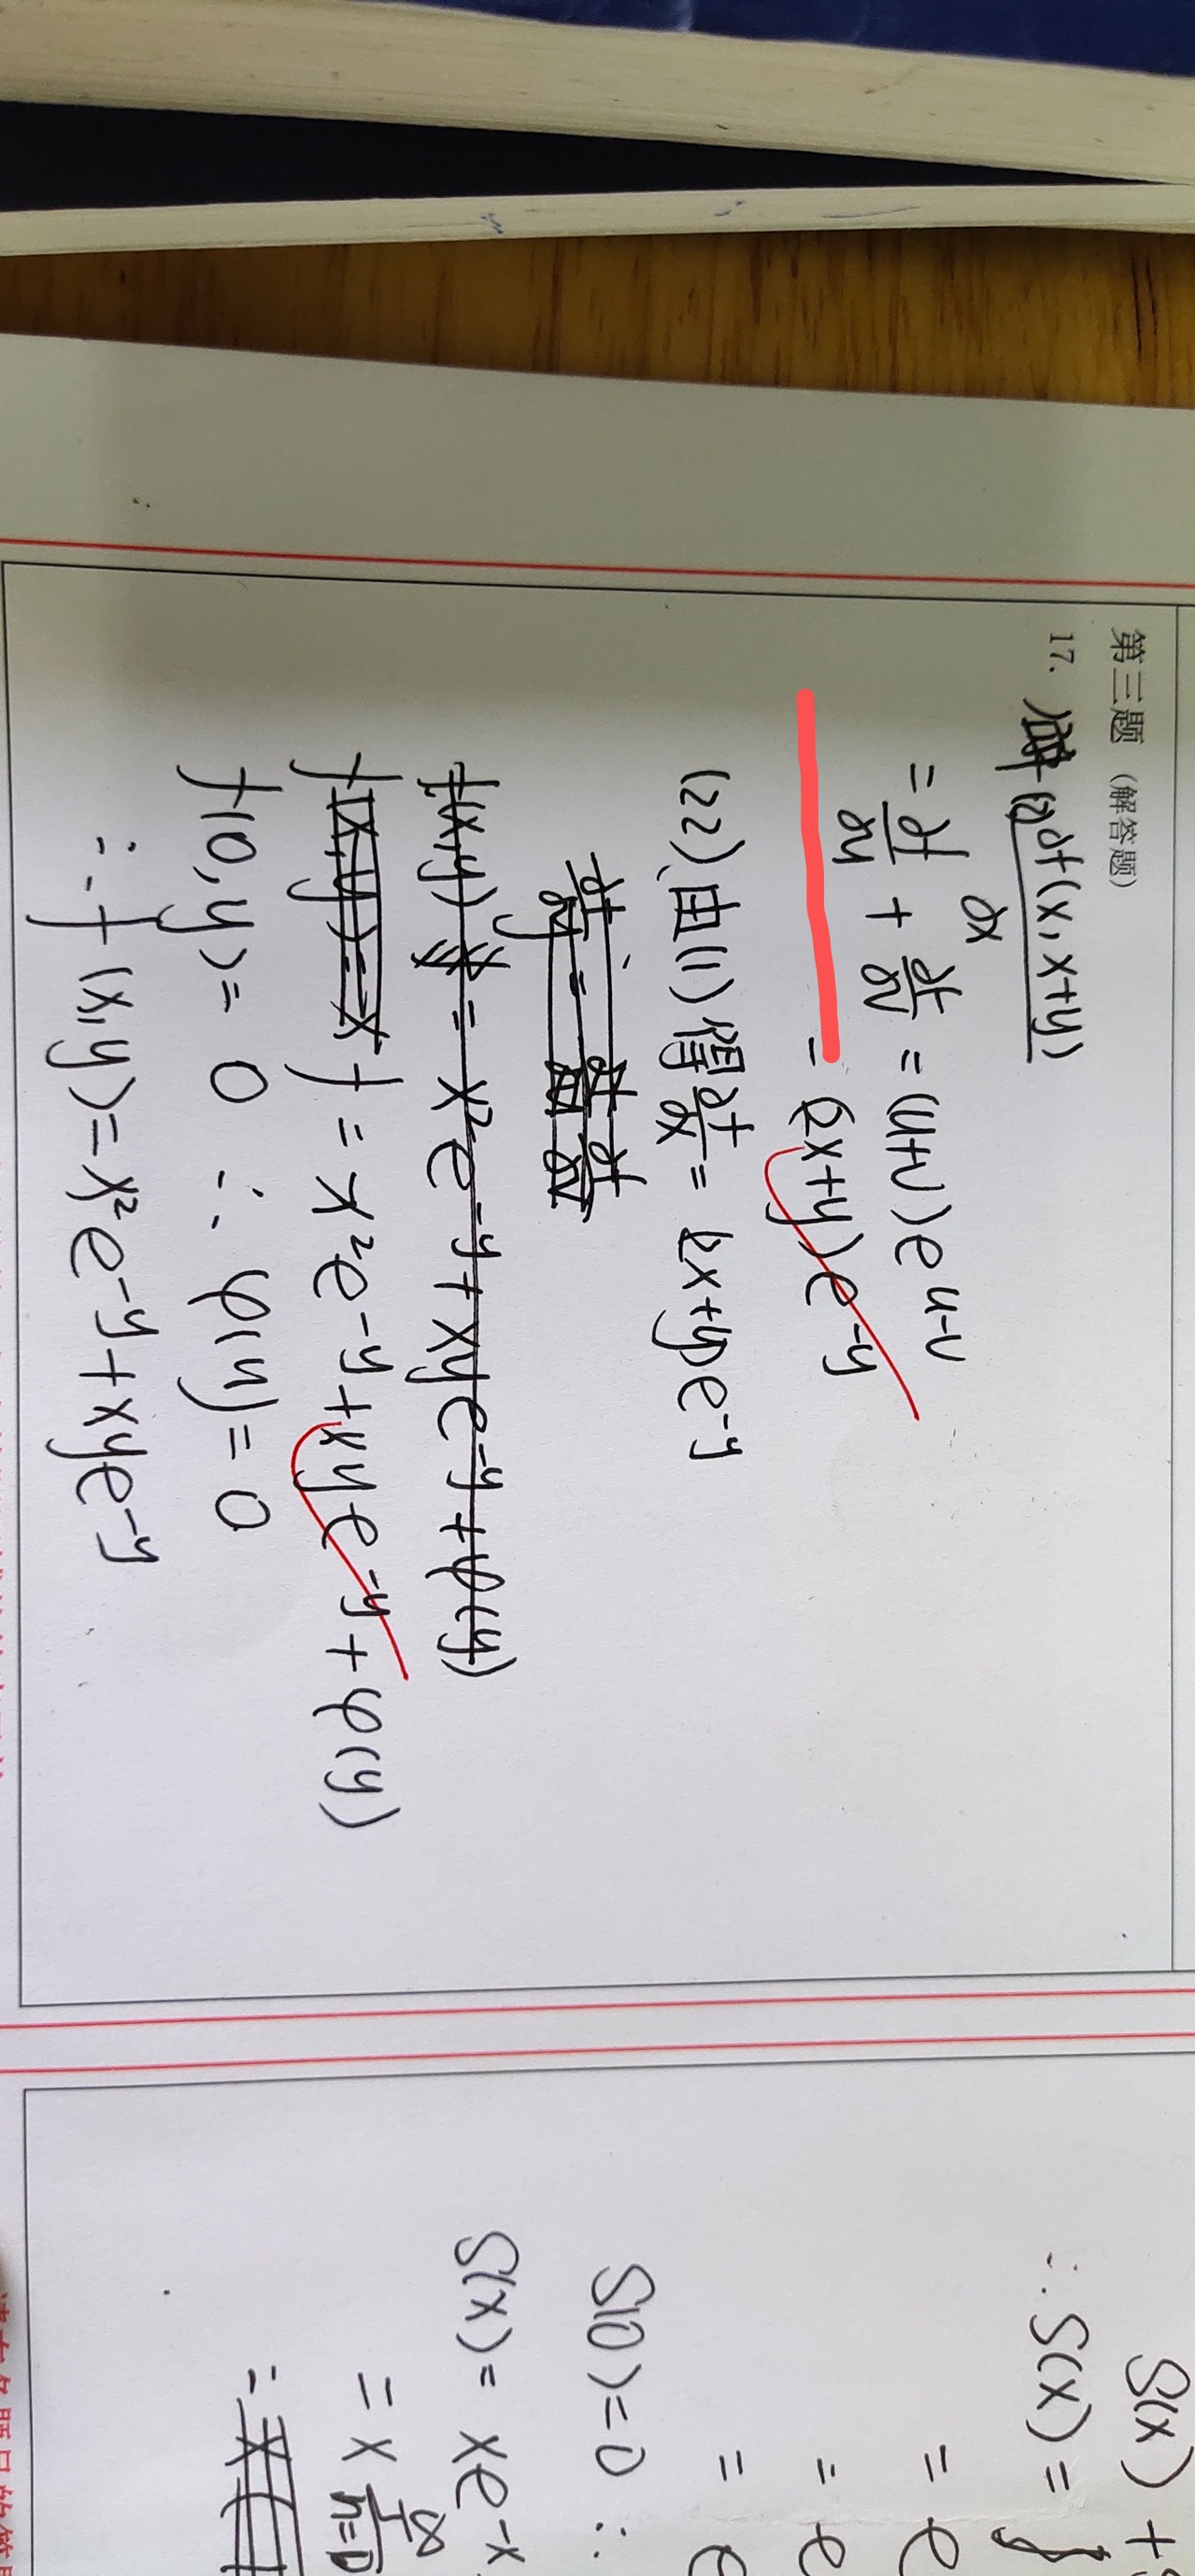 第三题（解答题）
17. 解 (1) ∂f(x,x+y)
∂x
= ∂f/∂u + ∂f/∂v = (u+v)e^{u-v}
= (2x+y)e^{-y}
(2) 由(1)得 ∂f/∂x = (2x+y)e^{-y}
f(x,y) = x²e^{-y} + xye^{-y} + φ(y)
f = x²e^{-y} + xye^{-y} + φ(y)
f(0,y) = 0 ∴ φ(y) = 0
∴ f(x,y) = x²e^{-y} + xye^{-y}
S(x) +
∴ S(x) = ∫
= e
= e
= e
S(0) = 0 ∴
S(x) = xe^{-x}
= x ∑ ∞ n=0